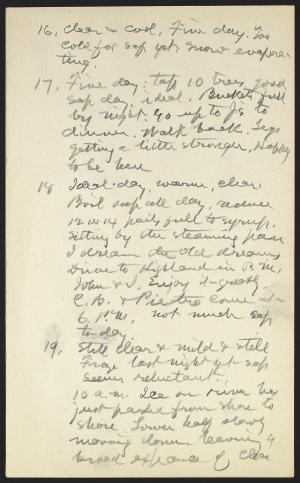 16, clear & cool. Fine day. Too
cold for sap yet. Snow evapora-
ting.
17, Fine day. tap 10 trees, good
sap day, ideal. Buckets full
by night. Go up to J's to
dinner. Walk back. Legs
getting a little stronger, Happy
to be here
18 Ideal day, warm, clear.
Boil sap all day, reduce
12 or 14 pails full to syrup.
Sitting by the steaming pan
I dream the old dreams
Drive to Highland in P.M.
John & I. Enjoy it greatly.
C. B. & Pietro come at
6 P.M. not much sap
to-day.
19, Still clear & mild & still
Froze last night yet sap
seems reluctant.
10 a.m. Ice on river has
just parted from shore to
shore. Lower half slowly
moving down leaving a
broad expanse of clear